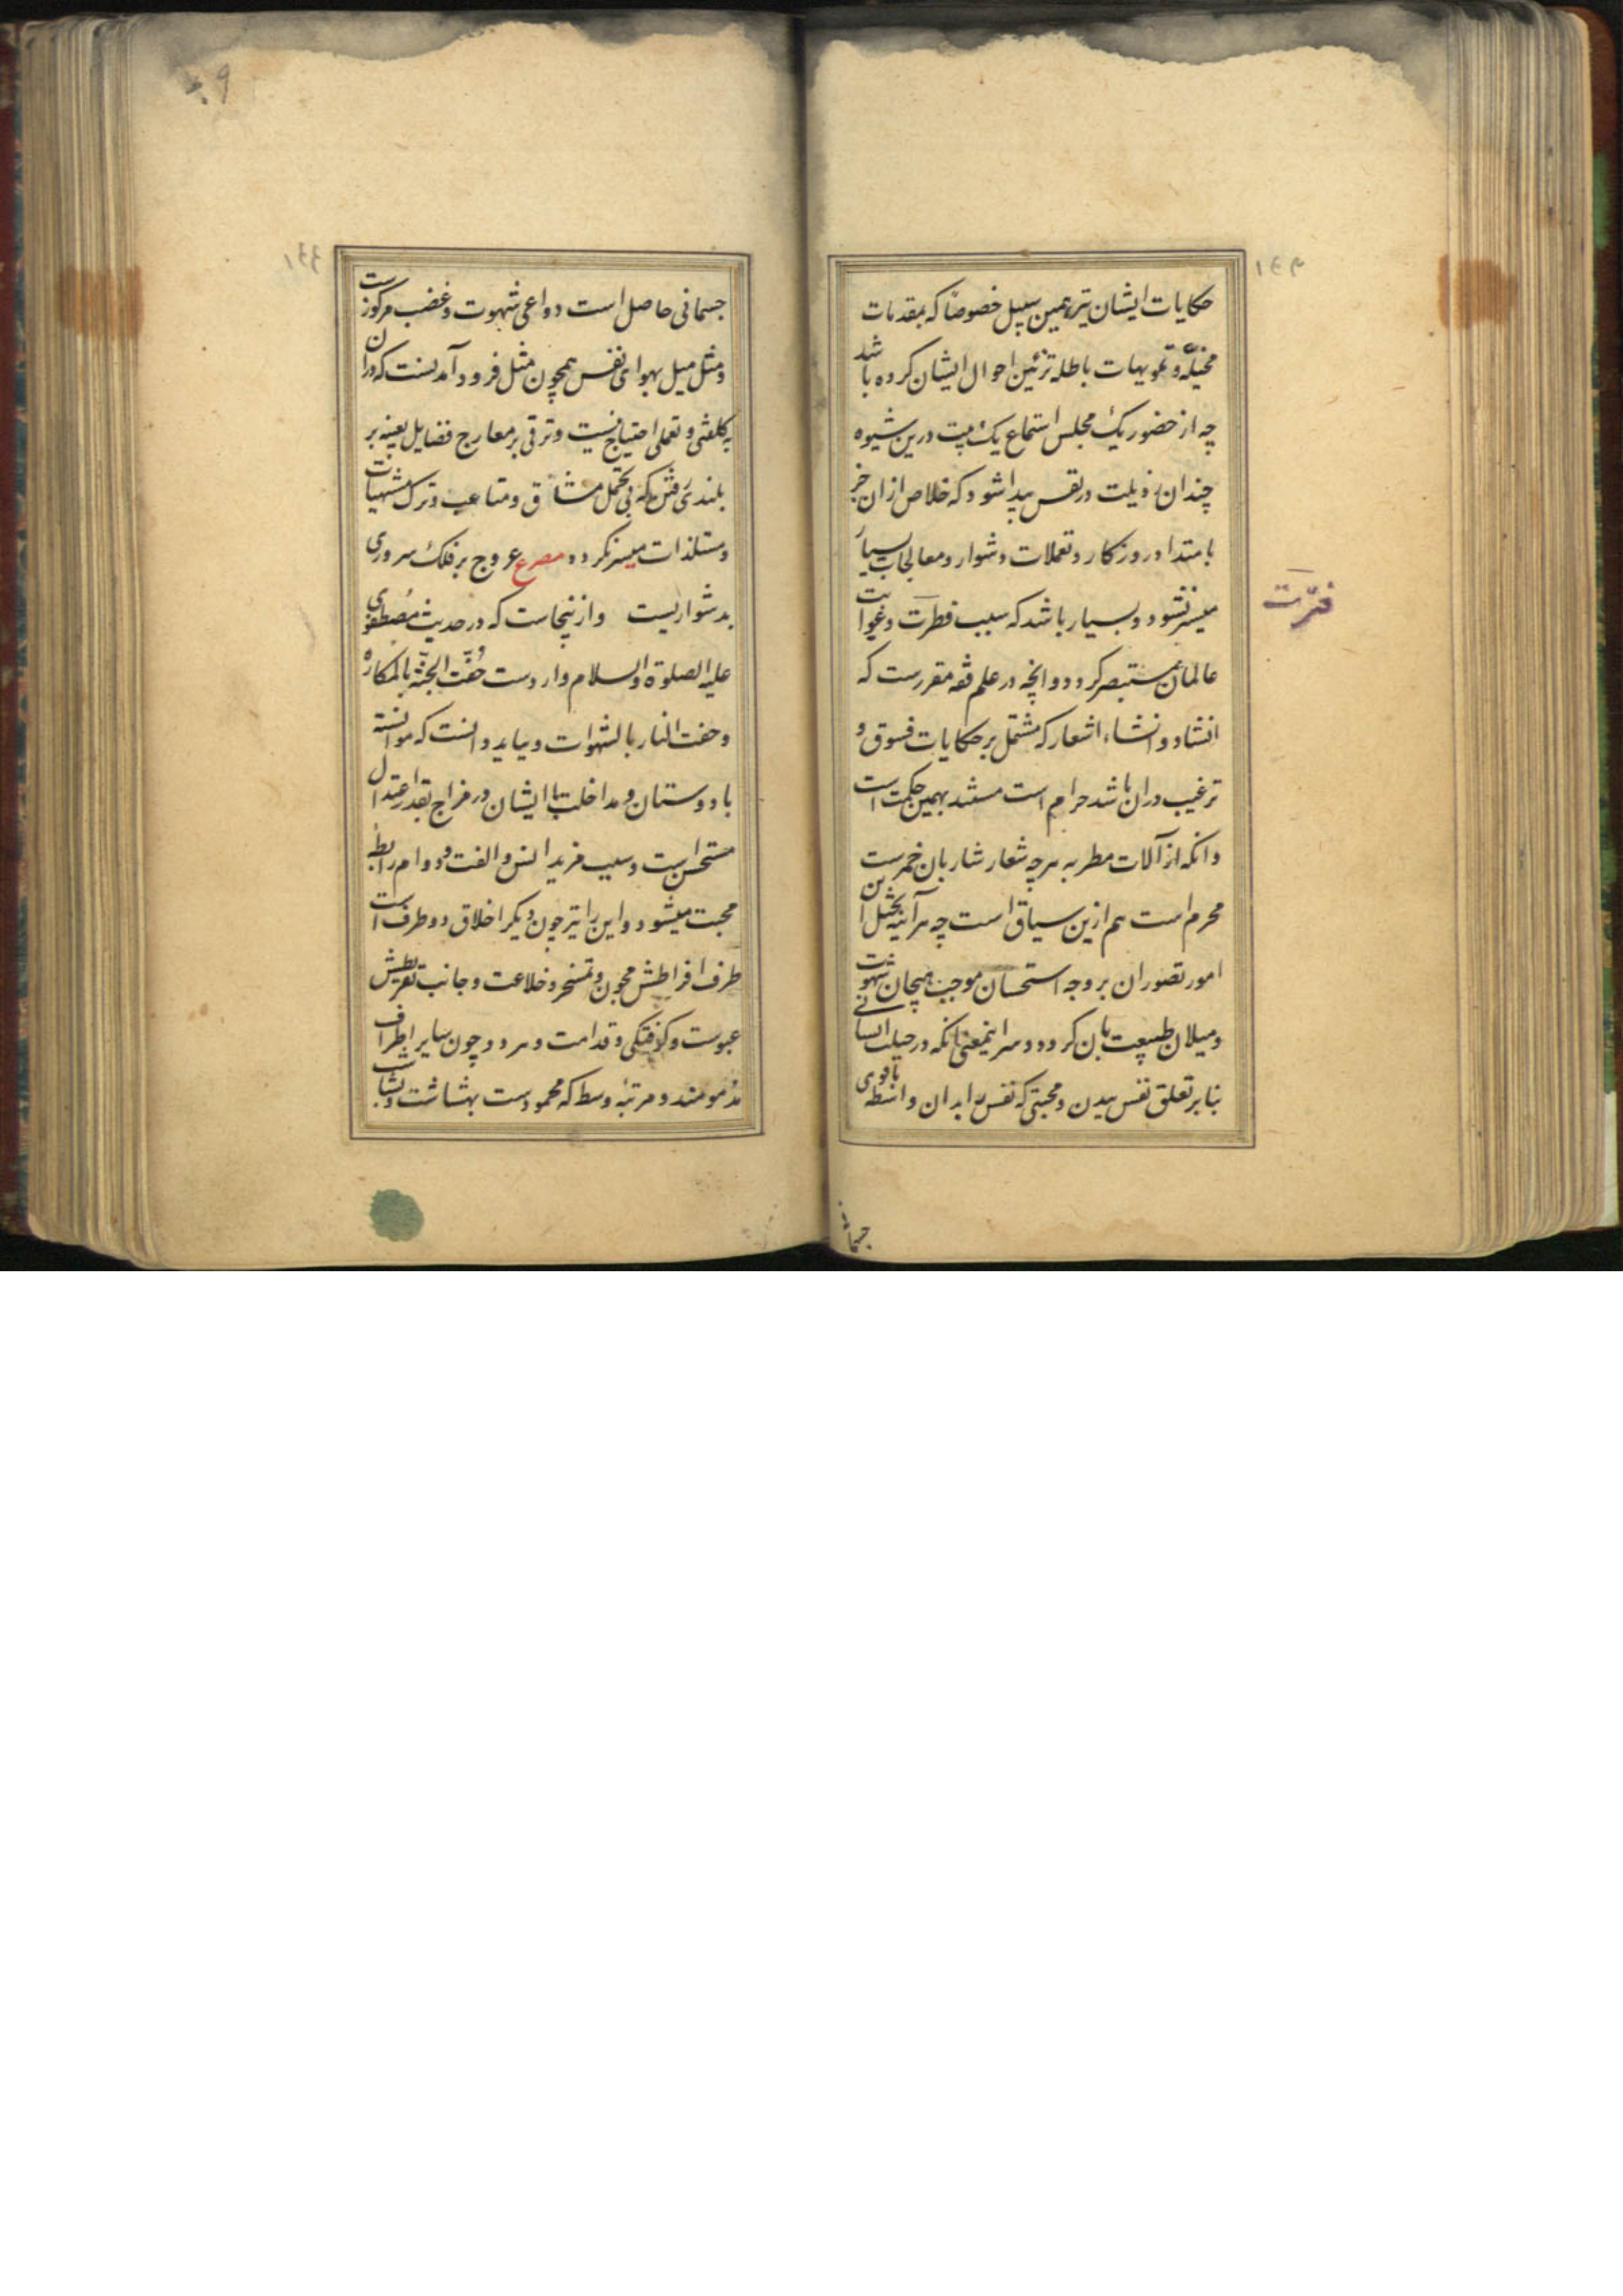 ١٤٣
حکایات ایشان نیز بهمین سبیل خصوصا که بمقدمات
مخیله و تمویهات باطله تزئین احوال ایشان کرده باشد
چه از حضور یک مجلس استماع یک بیت درین شیوه
چندان رذیلت در نفس پیدا شود که خلاص ازان جز
بامتداد روزکار و تعملات دشوار و معالجات بسیار
میسر نشود و بسیار باشد که سبب فطرت و غوایت
عالمان مستبصر کردد و انچه در علم فقه مقررست که
انشاد و انشاء اشعار که مشتمل بر حکایات فسوق و
ترغیب دران باشد حرام است مستند بهمین حکمت است
و انکه از آلات مطربه هرچه شعار شاربان خمرست
محرم است هم ازین سیاق است چه هر آینه تخیل این
امور تصور ان بر وجه استحسان موجب هیجان شهوت
و میلان طبیعت بان کردد و سر اینمعنی انکه در جبلت انسانی
بنابر تعلق نفس ببدن و محبتی که نفس را بدان واسطه با قوی
فترت
جسمانی
١٤٤
جسمانی حاصل است دواعی شهوت و غضب مرکوزست
و مثل میل بهوای نفس همچون مثل فرود آمدنست که دران
به کلفتی و تعملی احتیاج نیست و ترقی بر معارج فضایل بعینه بر
بلندی رفتن که بی تحمل مشاق و متاعب و ترک مشتهیات
و مستلذات میسر نکردد مصرع عروج بر فلک سروری
بدشواریست و ازینجاست که در حدیث مصطفوی
علیه الصلوة و السلام واردست حُفّت الجنّة بالمکاره
و حفت النار بالشهوات و بباید دانست که موانسته
با دوستان و مداخلت با ایشان در مزاح بقدر اعتدال
مستحسن است و سبب مزید انس و الفت و دوام رابطه
محبت میشود و این را نیز چون دیکر اخلاق دو طرف است
طرف افراطش مجون و تمسخر و خلاعت و جانب تفریطش
عبوست و کرفتکی و قدامت و هر دو چون سایر اطراف
مذمومند و مرتبه وسط که محمودست بهشاشت و بشاشت